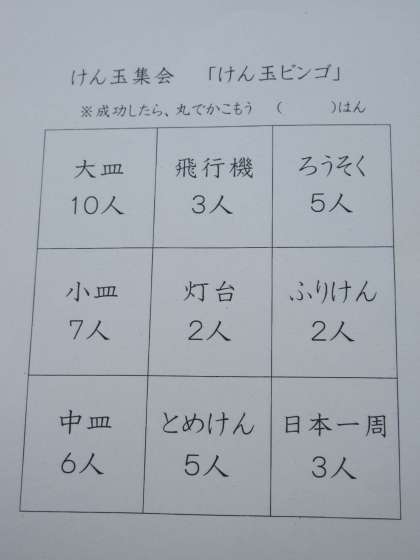 けん玉集会 「けん玉ビンゴ」
※成功したら、丸でかこもう ( )はん
大皿 飛行機 ろうそく
10人 3人 5人
小皿 灯台 ふりけん
7人 2人 2人
中皿 とめけん 日本一周
6人 5人 3人